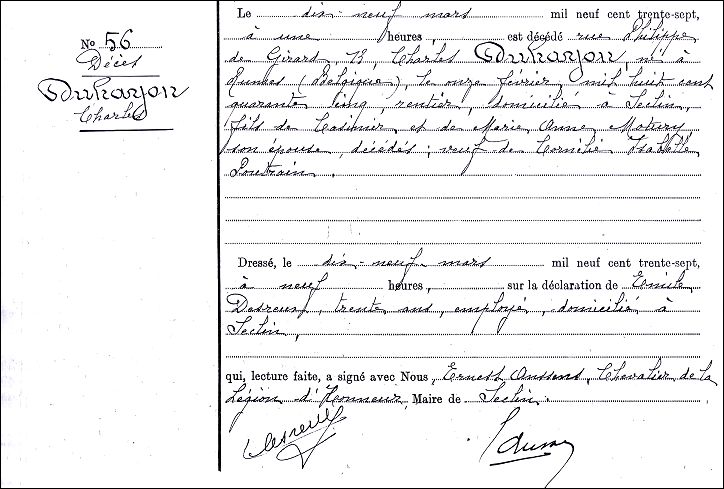 No 56
Décès
Duhayon
Charles
Le dix-neuf mars mil neuf cent trente-sept,
à une heures, est décédé rue Philippe
de Girard, 13, Charles Duhayon, né à
Rumes (Belgique), le onze février mil huit cent
quarante cinq, rentier, domicilié à Seclin,
fils de Casimir, et de Marie Anne
son épouse, décédés; veuf de Cornélie Isabelle
Poutrain.
Dressé, le dix-neuf mars mil neuf cent trente-sept,
à neuf heures, sur la déclaration de Emile
Desreux, trente ans, employé, domicilié à
Seclin,
qui, lecture faite, a signé avec Nous, Ernest Anssens, Chevalier de la
Légion d'Honneur, Maire de Seclin.
Desreux